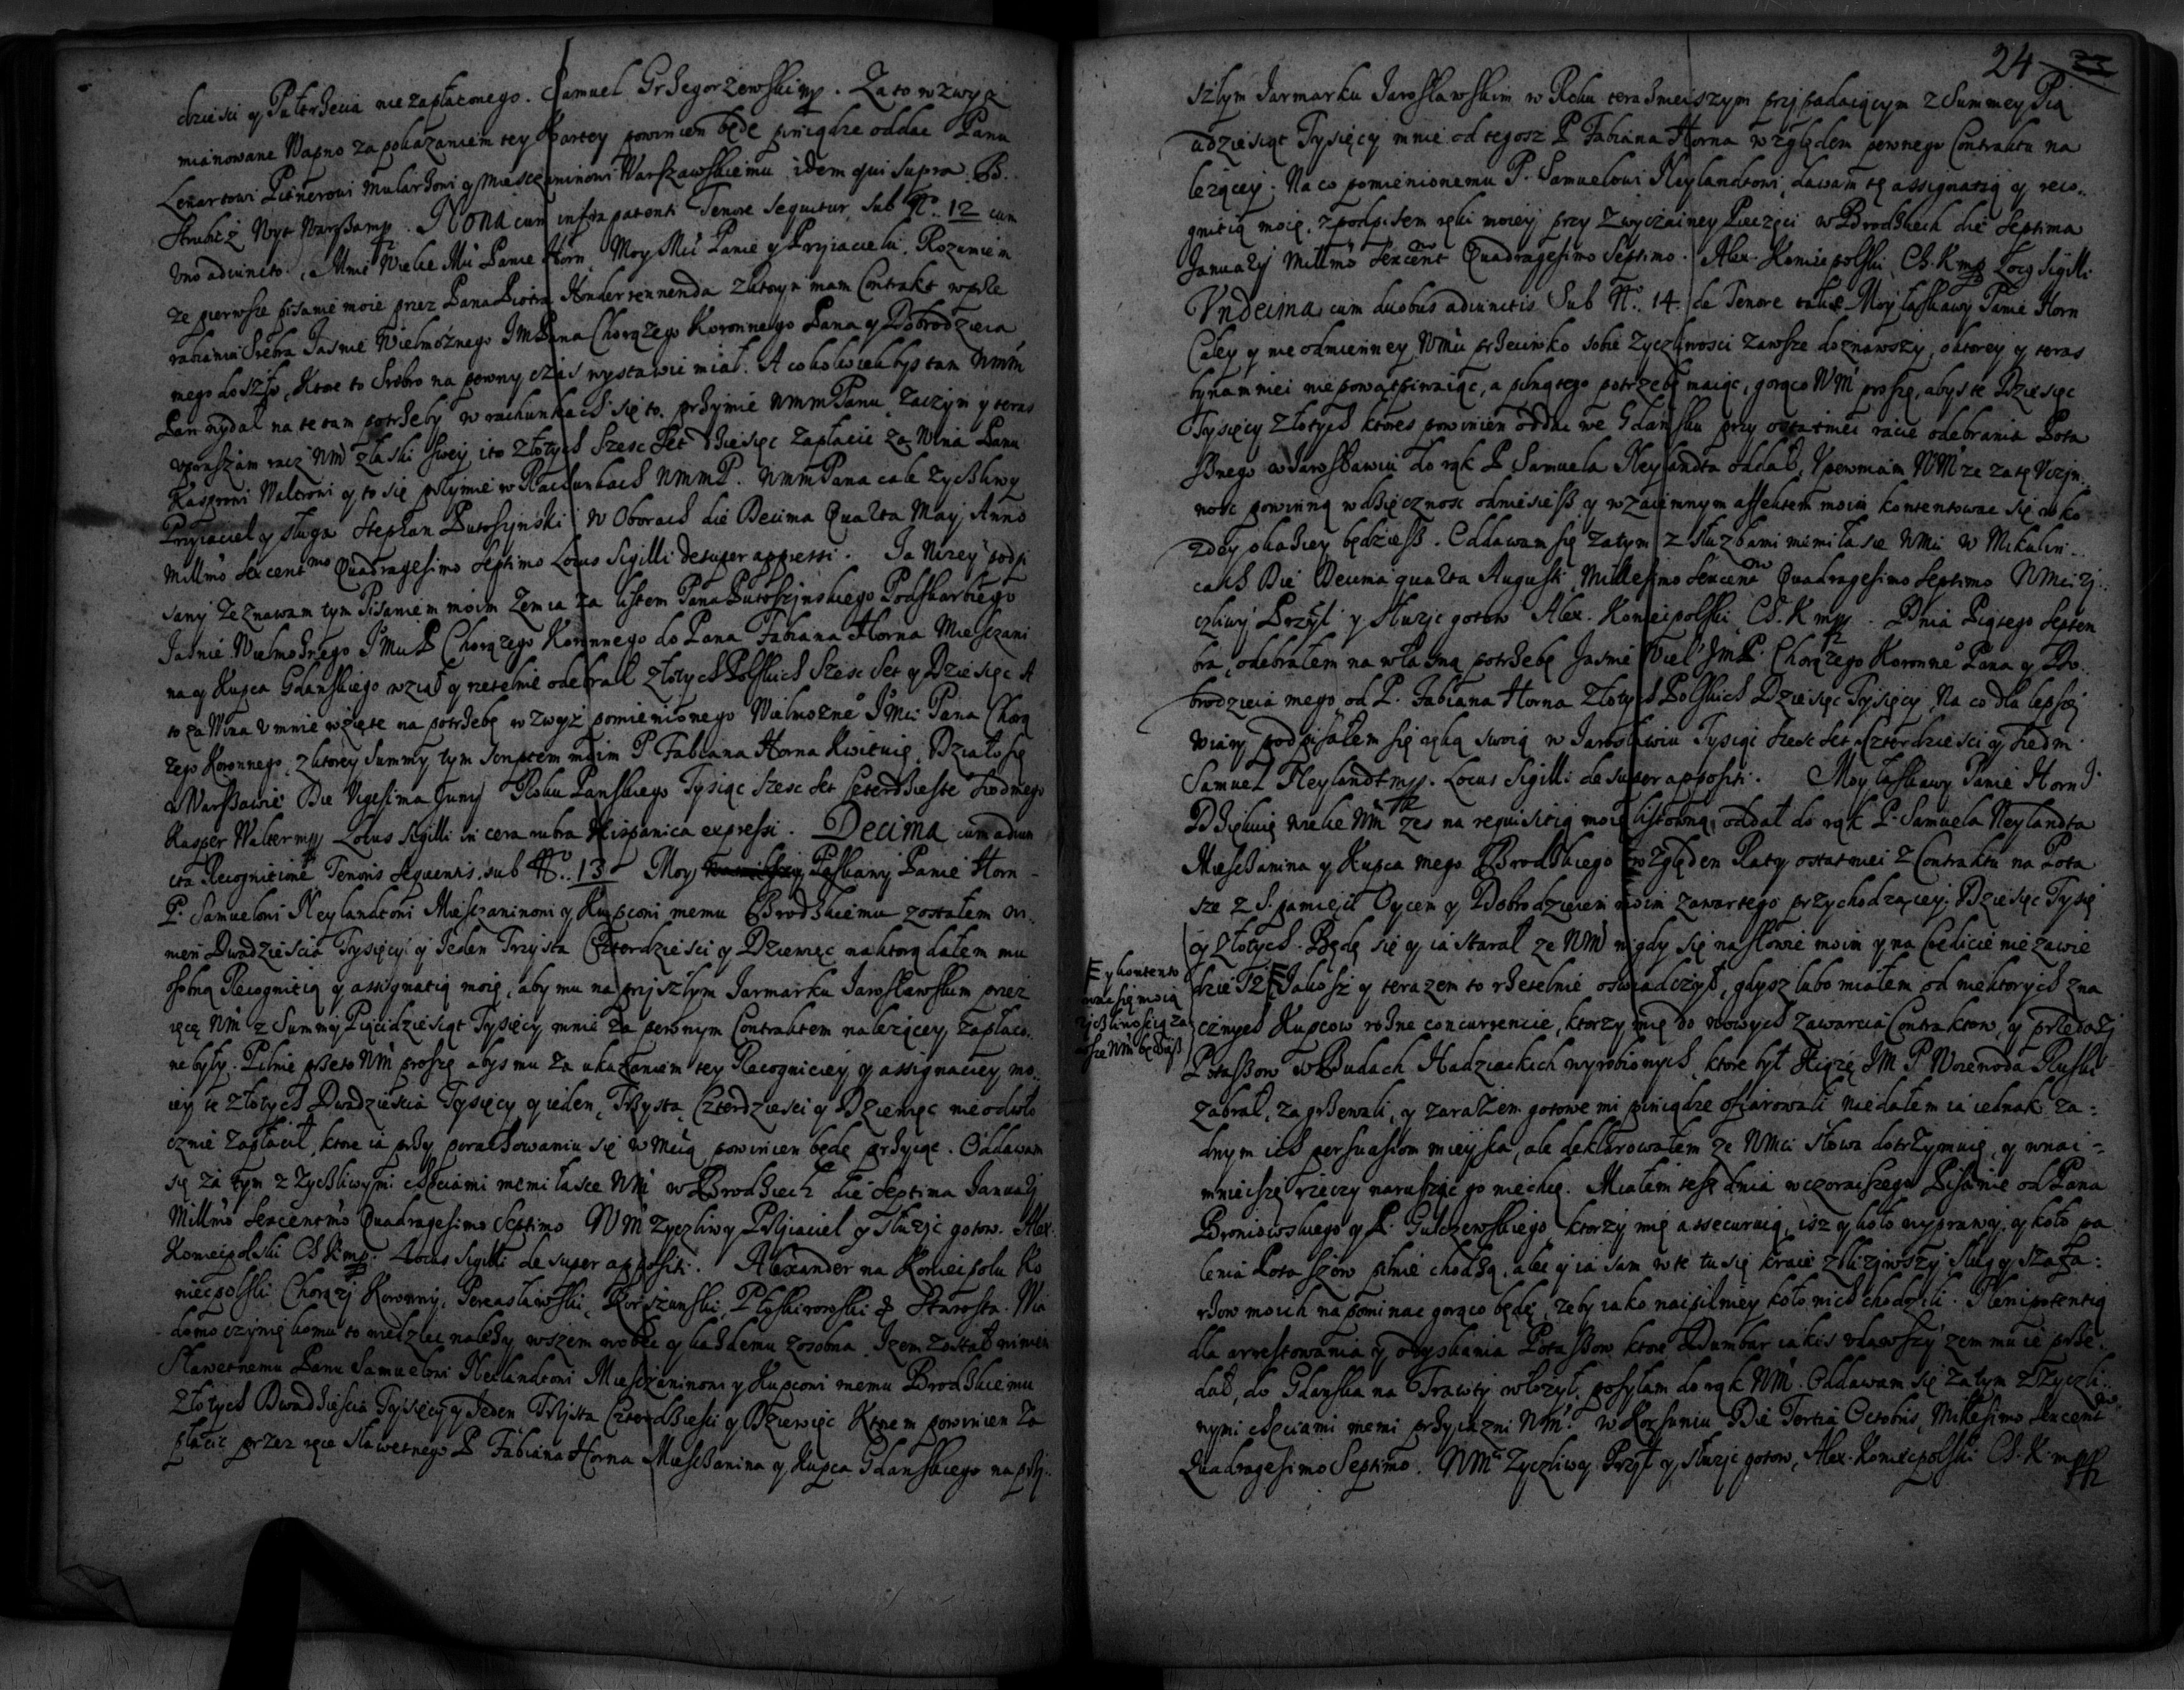 dzieści y Pułtrzecia niezapłaconego. Samuel Grzegorzewski mp. Za to w zwyż
mianowane Wapno za pokazaniem tey Kartey powinien będę piniądze oddac Panu
Lenartowi Pitnerowi mularzowi y Mieszczaninowi Warszawskiemu idem qui supra B.
Nona cum infra patenti Tenore sequitur, sub No. 12 cum
uno adiuncto. Mnie Wielce Mći Panie Horn Moy Mći Panie y Przyiacielu. Rozumiem
ze pierwsze pisanie moie przez Pana Piotra Hendersennenda z ktorym mam Contrakt wzgle
rabiania Srebra Jasnie Wielmożnego JMPana Chorążego Koronnego Pana y Dobrodzieia
mego doszło, Ktore to Srebro na pewny czas wystawić miał. A cokolwiekbys tam WMM
Pan wydał na te tam potrzeby w rachunkach się to przyimie WMMPanu, Zaczym y teraz
upraszam racz WM z łaski swey ito złotych Szesc Set dziesięc zapłacic za Wina Panu
Kasprowi Walterowi y to się przyimie w Rachunkach WMMP. WMMPana cale zyczliwy
Przyiaciel y sługa Stephan Putoszynski w Oborach die Decima Quarta May Anno
Millmo Sexcentmo Quadragesimo Septimo Locus Sigilli desuper appressi. Ja nizey podpi
sany zeznawam tym Pisaniem moim zem ia za listem Pana Putoszynskiego Podskarbiego
Jasnie Wielmożnego JMći P Chorążego Koronnego do Pana Fabiana Horna Mieszczani
na y Kupca Gdanskiego wziął y rzetelnie odebrał złotych Polskich Szesc Set y Dziesięc A
to za Wina u mnie wzięte na potrzebę w zwyż pomienionego Wielmożneo JMći Pana Chorą
żego Koronnego, z ktorey Summy tym scriptem moim P Fabiana Horna Kwituię. Działo się
w Warszawie Die Vigesima Juny Roku Panskiego Tysiąc Szesc Set Czterdzieste Siodmego
Kasper Walter mp Locus Sigilli in cera rubra Hispanica expressi. Decima cum adiun
cta Recognitione Tenoris sequentis sub No. 13 Moy Łaskawy Panie Horn
P. Samuelowi Neylandtowi Mieszczaninowi y Kupcowi memu Brodzkiemu zostałem wi
nien Dwadziescia Tysięcy y Jeden Trzysta Czterdziesci y Dziewięc na ktorą dałem mu
osobną Recognitią y assignatią moię, aby mu na przyszłym Jarmarku Jarosławskim przez
ręcę WM z Summy Pięcidziesiąt Tysięcy mnie za pewnym Contraktem nalezącey zapłaco
ne były. Pilnie przeto WM proszę abys mu za ukazaniem tey Racogniciey y assignaciey mo
iey te złotych Dwadziescia Tysięcy y ieden, Trzysta Czterdziesci y Dziewięc nieodwło
cznie zapłacił, ktore ia przy porachowaniu się w Mcią powinien będę przyiąc. Oddawam
się za tym z zyczliwymi chęciami memi łasce WM w Brodziech die Septima Januarij
Millmo Sexcentmo Quadragesimo Septimo WM Zyczliwy Przyiaciel y służyc gotow. Alex.
Koniecpolski Ch Kmp. Locus Sigilli desuper appositi. Alexander na Koniecpolu Ko
niecpolski Chorązy Koronny, Pereasławski, Korszunski, Płoskirowski &. Starosta. Wia
domo czynię komu to wiedziec należy wszem wobec y kazdemu zosobna. Izem został winien
Sławetnemu Panu Samuelowi Neilandtowi Mieszczaninowi y Kupcowi memu Brodzkiemu
złotych Dwadziescia Tysięcy y Jeden Trzysta Czterdziesci y Dziewięc Ktore m powinien za
płacic przez ręce sławetnego P Fabiana Horna Mieszczanina y Kupca Gdanskiego na przy
24
szłym Jarmarku Jarosławskim w Roku teraznieiszym przypadaiącym z Summey Pię
cdziesiąt Tysięcy mnie od tegosz P Fabiana Horna względem pewnego Contraktu na
lezącey. Na co pomienionemu P. Samuelowi Neylandtowi, dawam tę assignatią y reco
gnitią moię, z podpisem ręki moiey przy zwyczainey Pieczęci w Brodziech die Septima
Januarij Millmo Sexcentmo Quadragesimo Septimo. Alex. Koniecpolski Ch. K mp Locg Sigilli
Undecima cum duobus adiunctis Sub No. 14. de Tenore tali. Moy łaskawy Panie Horn
Całey y nieodmienney WMći przeciwko sobie zyczliwosci zawsze doznawszy, oktorey y teras
bynamniei niepowątpiwaiąc, a pilną tego potrzebę maiąc, gorąco WM proszę, abyste Dziesięc
Tysięcy złotych ktores powinien oddac we Gdansku przy ostatniei racie odebrania Pota
sznego w Jarosławiu do rąk P Samuela Neylandta oddał, Upewniam WM ze za tę Uczyn
nosc powinną wdzięcznosc odniesiesz y wzaiemnym affektem moim kontentowac się w ko
zdey okaziey będziesz. Oddawam się zatym z służbami memi łasce WMći w Mikulin
cach Die Decima quarta Augusti Millesimo Sexcentmo Quadragesimo Septimo WMći zy
czliwy Przyl y służyc gotow Alex. Koniecpolski Ch. K mp. Dnia Piątego Septem
bra, odebrałem na własną potrzebę Jasnie Wiel JMP. Chorążego Koronneo Pana y Do
brodzieia mego od P. Fabiana Horna złotych Polskich Dziesięc Tysięcy, Na co dla lepszej
wiary podpisałem się ręką swoią w Jarosławiu Tysiąc szesc set czterdziesci y siedm.
Samuel Neylandt mp. Locus Sigilli desuper appositi. Moy łaskawy Panie Horn
Dziękuię wielce WM zes na requisitią moię listowną, oddał do rąk P. Samuela Neylandta
Mieszczanina y Kupca mego Brodzkiego względem Raty ostatniei z Contraktu na Pota
sze z S. pamięci Oycem y Dobrodzieiem moim zawartego przychodzącey. Dziesięc Tysię
cy złotych. Będę się y ia starał ze WM nigdy się na słowie moim y na Credicie niezawie
y kontento
wac się moią
zyczliwoscią za
wsze WM będziesz
dziesz. Jakosz y terazem to rzetelnie oswiadczył, gdysz lubo miałem od niektorych zna
cznych Kupcow rożne concurrencie, ktorzy mię do nowych zawarcia Contraktow, y przedazy
Potaszow w Budach Hadziackich wyrobionych, ktore był Xiążę JM P Woiewoda Ruski
zabrał, zagrzewali, y zarazem gotowe mi piniądze ofiarowali niedałem ia iednak za=
dnym ich persuasiom mieyska, ale deklarowałem ze WMći słowa dotrzymuię, y wnai=
mnieiszej rzeczy naruszyc go niechcę. Miałem tesz dnia wczoraiszego Pisanie od Pana
Broniowskiego y P. Gulczewskiego, ktorzy mię assecuruią, isz y koło wyprawy, y koło pa
lenia Potaszow pilnie chodzą, alec y ia sam w te tu się kraie zblizywszy sług y szafa=
rzow moich napominac gorąco będę, zeby iako naipilniey koło nich chodzili. Plenipotentią
dla arrestowania y odyskania Potaszow ktore Dumbar iakis udawszy zem mu ie prze
dał, do Gdanska na Trawty włozył, posyłam do rąk WM. Oddawam się zatym z zyczli
wymi chęciami memi przyiazni WM. w Korsuniu Die Tertia Octobris, Millesimo Sexcentmo
Quadragesimo Septimo. WM Zyczliwy Przyl y służyc gotow, Alex. Koniecpolski Ch. K mp